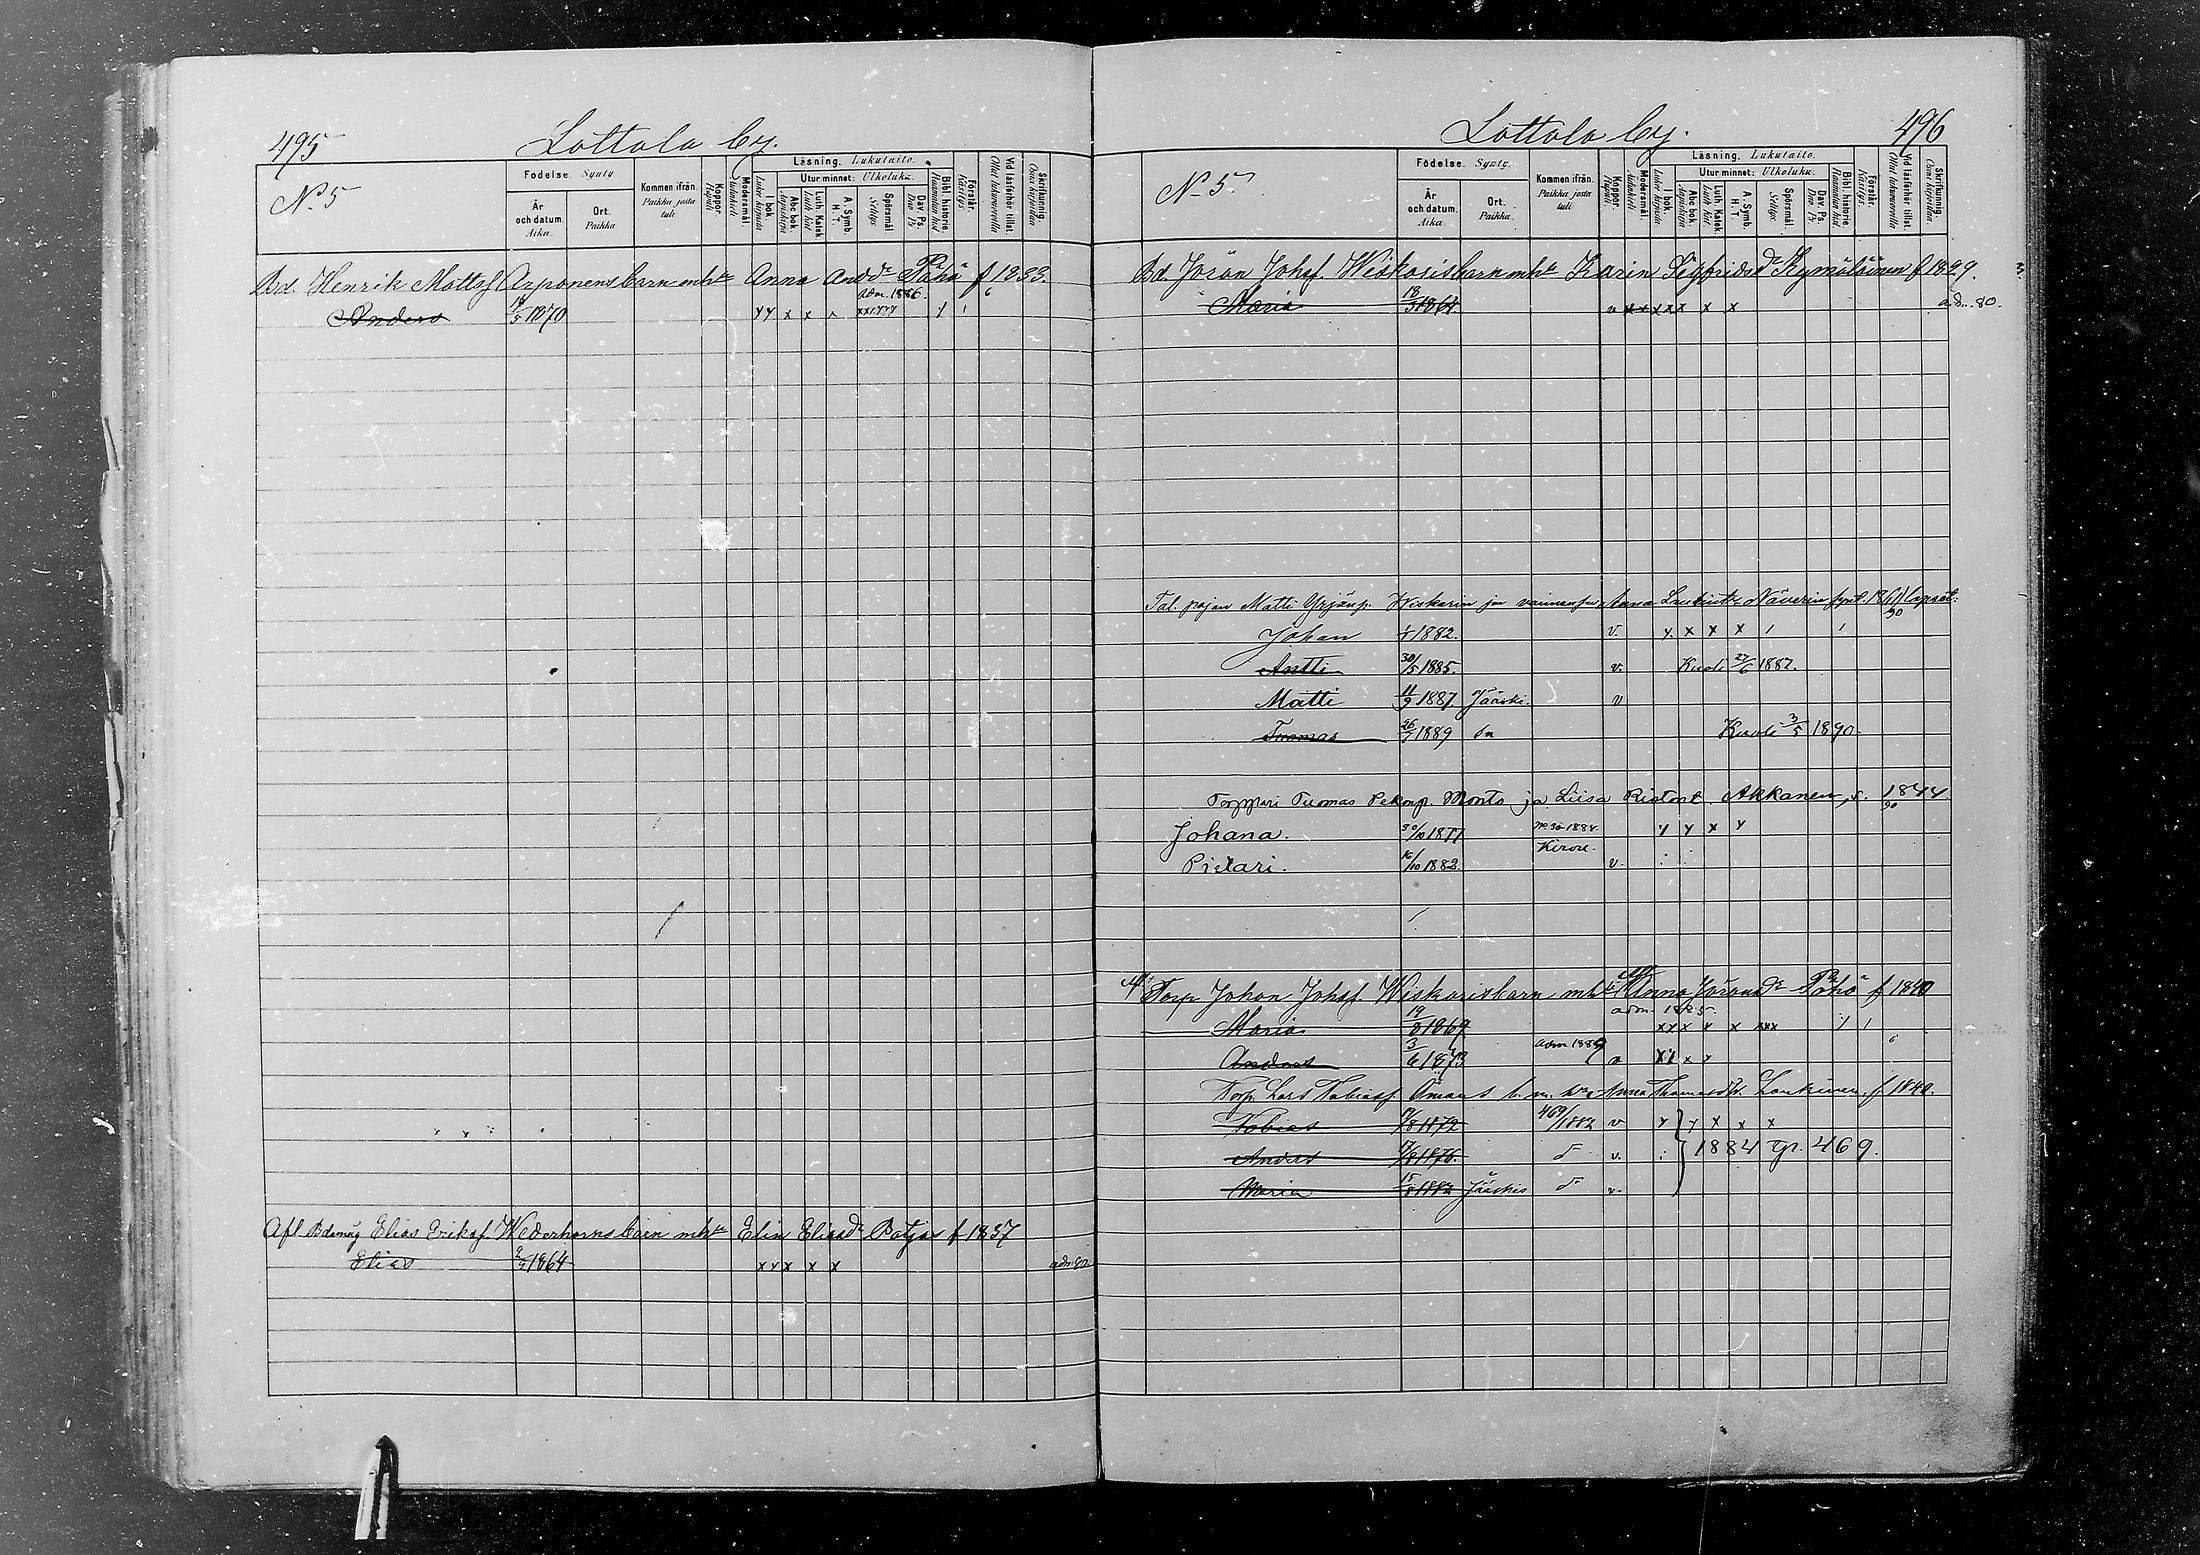 495
Lottola by.
N 5
Födelse. Synty.
År och datum. Aika.
Ort. Paikka
Kommen ifrån. Paikka josta tuli
Koppor. Rupuli
Modersmål. Äidinkieli
Läsning. Lukutaito.
I bok. Lukee kirjasta
Utur minnet: Ulkoluku.
Abc bok. Aapiskirja
Luth. Katek. Luth. kat.
A. Symb. H. T.
Spörsmål. Selitys
Dav. Ps. Dav. Ps.
Bibl. historie. Raamatun hist.
Förstår. Käsitys.
Vid läsförhör tillst. Ollut lukuvuoroilla
Skrifkunnig. Osaa kirjoittaa
Bd. Henrik Mattsf Arponens barn m hu Anna Andr dr Pöhö f 1833.
Anders 1870 adm. 1886.
Afl. Bdsmåg Elias Eriksf. Wederhorns barn m hu Elin Eliasdr Patjas f 1837
Elias 1864 x x x x x adm 80
496
Lottola by.
N 5
Födelse. Synty.
År och datum. Aika.
Ort. Paikka.
Kommen ifrån. Paikka josta tuli
Koppor. Rupuli
Modersmål. Äidinkieli
Läsning. Lukutaito.
I bok. Lukee kirjasta
Utur minnet: Ulkoluku.
Abc bok. Aapiskirja
Luth. Katek. Luth. kat.
A. Symb. H. T.
Spörsmål. Selitys
Dav. Ps. Dav. Ps.
Bibl. historie. Raamatun hist.
Förstår. Käsitys.
Vid läsförhör tillst. Ollut lukuvuoroilla
Skrifkunnig. Osaa kirjoittaa
Bd. Jöran Johsf. Wiskaris barn m hu Karin Sigfridsdr Kymäläinen f 1829.
Maria 18/3 1864. v x x x x x x x adm. 80.
Tal. pojan Matti Yrjönp. Wiskarin ja vaimonsa Anna Laurintr Näverin synt. 1861 lapset:
90
Johan 1/1 1882. v. x x x x / /
Antti 30/5 1885. v. Kuoli 27/6 1887.
Matti 11/9 1887 Jääski. v
Tuomas 26/7 1889 Kuoli 3/5 1890.
Torppari Tuomas Pekanp. Monto ja Liisa Ristont. Akkanen, s. 1844
90
Johana. 30/10 1877
Kirvu.
Pietari. 16/10 1882. v.
Torp Johan Johsf. Wiskaris barn m hu Anna Jöransdr Pöhö f 1840
Maria 19/8 1869 adm. 1885.
Anders 3/6 1873 adm 1889
Torp. Lars Tobiasf. b. m. hu Anna Thomasdr Laukinen f 1840.
Tobias 1872 469/1882 v
Anders 1876. v. 1884 p. 469.
Maria 1882 Jääskis v.